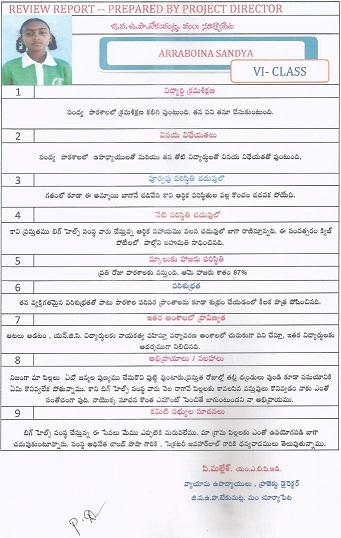 REVIEW REPORT -- PREPARED BY PROJECT DIRECTOR
జి.ప.ఉ.పా.టేకుమట్ల మం: సూర్యాపేట
ARRABOINA SANDYA
VI- CLASS
1 విద్యార్థి క్రమశిక్షణ
సంధ్య పాఠశాలలో క్రమశిక్షణ కలిగి వుంటుంది. తన పని తనూ చేసుకుంటుంది.
2 వినయ విధేయతలు
సంధ్య పాఠశాలలో ఉపాధ్యాయులతో మరియు తన తోటి విద్యార్థులతో వినయ విధేయతతో వుంటుంది,
3 పూర్వపు పరిస్థితి చదువులో
గతంలో కూడా ఈ అమ్మాయి బాగానే చదివేది కాని ఆర్థిక పరిస్థితుల వల్ల కొంచం చదవక పోయేది.
4 నేటి పరిస్థితి చదువులో
కాని ప్రస్తుతము బిగ్ హెల్ప్ సంస్థ వారు చేస్తున్న ఆర్థిక సహాయము వలన చదువులో బాగా రాణిస్తున్నది. ఈ సంవత్సరం క్విజ్
పోటీలలో పాల్గొని బహుమతి సాధించినది.
5 స్కూలుకు హాజరు పరిస్థితి
ప్రతి రోజు పాఠశాలకు వస్తుంది. ఆమె హాజరు శాతం 87%
6 పరిశుభ్రత
తన వ్యక్తిగతమైన పరిశుభ్రతతో పాటు పాఠశాల పరిసర ప్రాంతాలను కూడా శుభ్రం చేయడంలో కీలక పాత్ర పోషించినది.
7 ఇతర అంశాలలో ప్రావిణ్యత
ఆటలు ఆడటం, యన్.జి.సి. విద్యార్థులకు నాయకత్వం వహిస్తూ పర్యావరణ అంశాలలో చురుకుగా పని చేస్తూ, ఇతర విద్యార్థులకు
ఆదర్శముగా నిలిచినది.
8 అభిప్రాయాలు / సలహాలు
నిజంగా మా పిల్లలు ఏదో జన్మల పుణ్యము చేసుకొని పుట్టి వుంటారు.ప్రస్తుత రోజుల్లో తల్లి దండ్రులు వుండి కూడా సమయానికి
ఏమి కొనివ్వలేక పోతున్నాము. కాని బిగ్ హెల్ప్ సంస్థ వారు నెల రాగానే పిల్లలకు కావలసిన వస్తువులు కొనివ్వడం నాకు ఎంతో
సంతోషంగా వుంది. నాయొక్క సూచన కొంత ఎమౌంట్ పెంచితే బాగుంటుందని నా అభిప్రాయము.
9 కమిటి సభ్యుల సూచనలు
బిగ్ హెల్ప్ సంస్థ చేస్తున్న ఈ సేవలు మేము ఎప్పటికి మరువలేము. మా గ్రామ పిల్లలకు ఎంతో ఉపయోగపడి బాగా
చదువుకుంటున్నారు. సంస్థ అధినేత చాంద్ పాషా గారికి , సెక్రటరీ జవహర్‌లాల్ గారికి ధన్యవాదములు తెలుపుతున్నాము.
పి.మల్లేశ్. యం.ఎ.బి.పి.ఇడి.
వ్యాయామ ఉపాధ్యాయులు , ప్రాజెక్టు డైరెక్టర్
జి.ప.ఉ.పా.టేకుమట్ల, మం :సూర్యాపేట